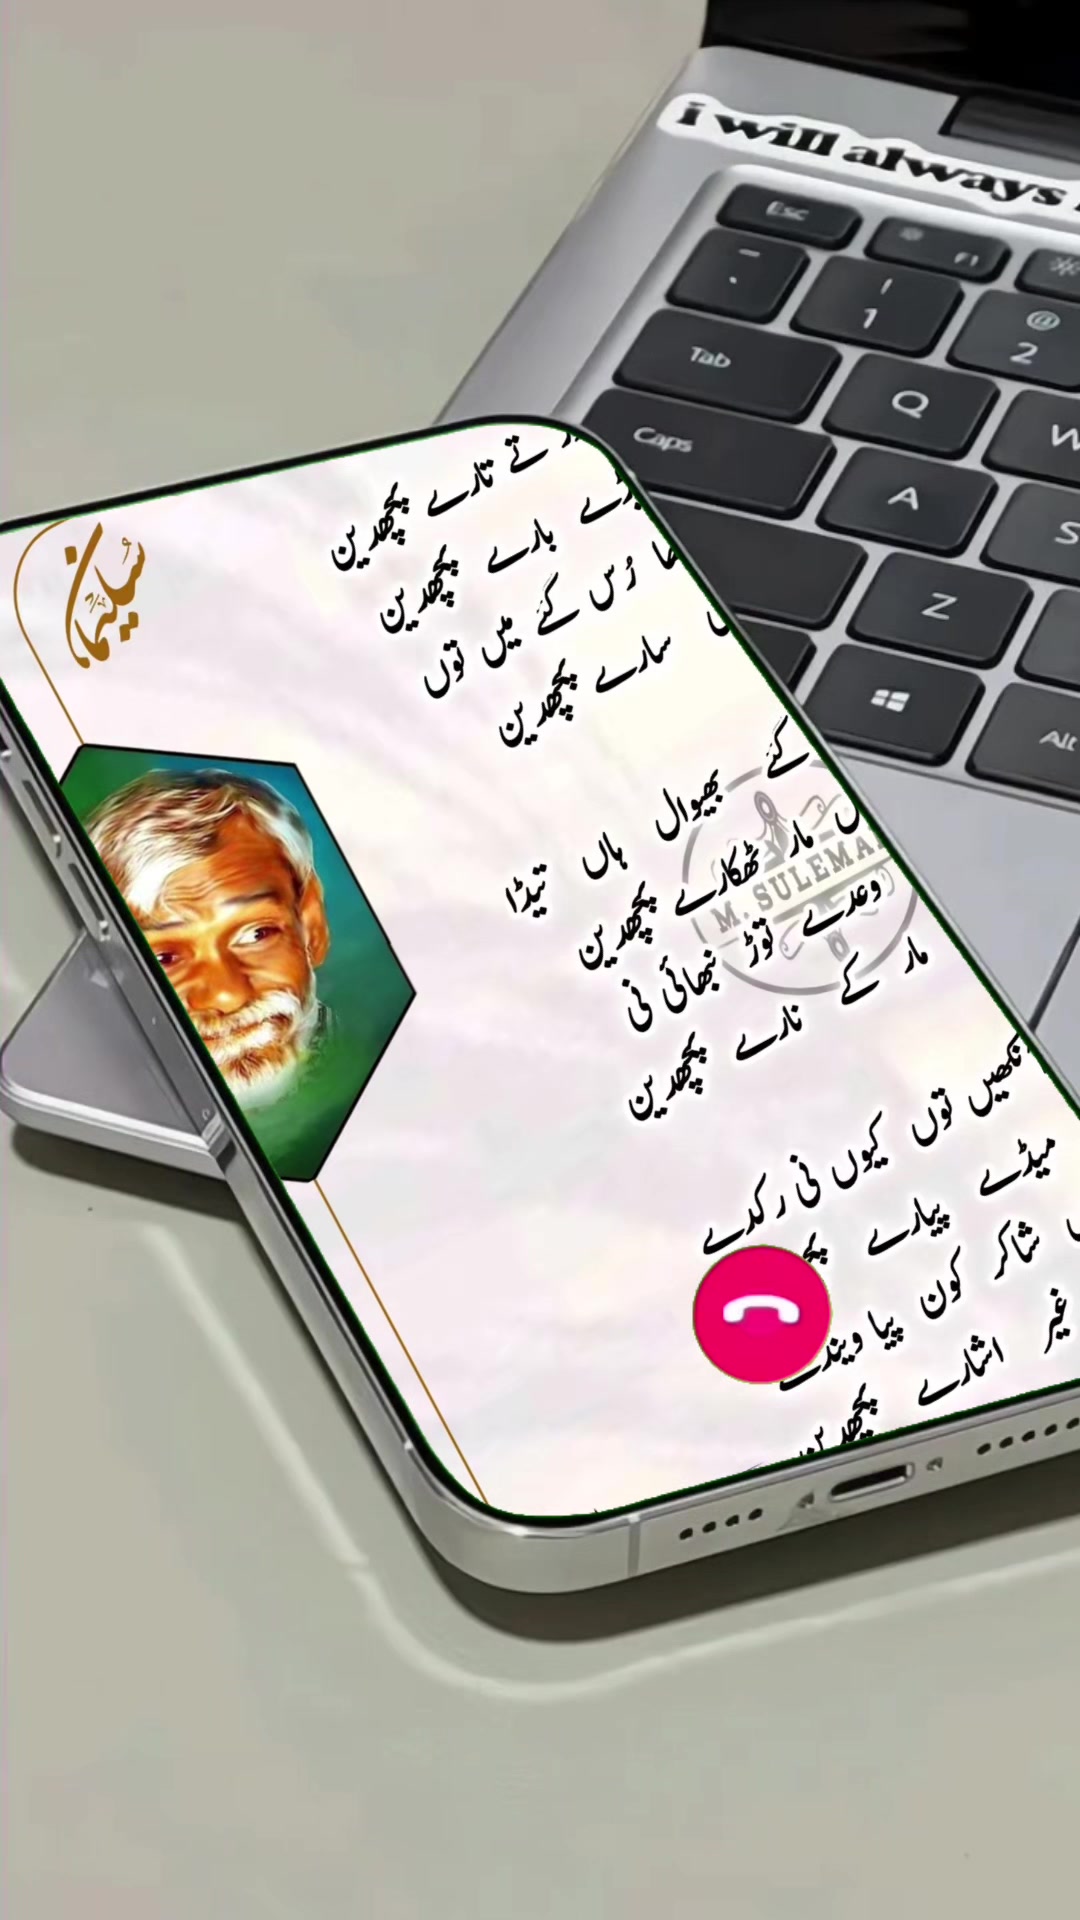 i will always
Esc
F1
1
@
2
Tab
Q
W
Caps
A
S
Z
Alt
سلیمان
تے تارے پچھدین
بارے پچھدین
رُس گئے ہیں توں
سارے پچھدین
گئے
بھیوال ہاں تیڈا
مار ٹھکارے پچھدین
وعدے توڑ نبھائی نی
مار کے نارے پچھدین
توں کیوں نی رکدے
میڈے پیارے
شاکر کون پیا ویندے
غیر اشارے پچھدین
M. SULEMA